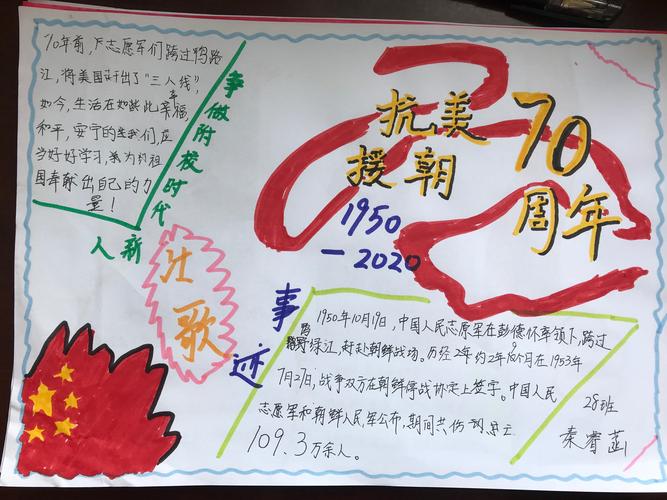 70年前，志愿军们跨过鸭路
江，将美国赶出了“三八线”，
如今，生活在如此幸福，
和平，安宁的我们，应
当好好学习，为祖
国奉献出自己的力
量！
争做附校时代
新人
抗美
援朝
70
周年
1950
—2020
壮歌
事迹
1950年10月19日，中国人民志愿军在彭德怀率领下，跨过
绿江，赶赴朝鲜战场。历经2年约2年9个月在1953年
7月27日，战争双方在朝鲜停战协定上签字。中国人民
志愿军和朝鲜人民军公布，期间共伤
109.3万余人。
28班
秦